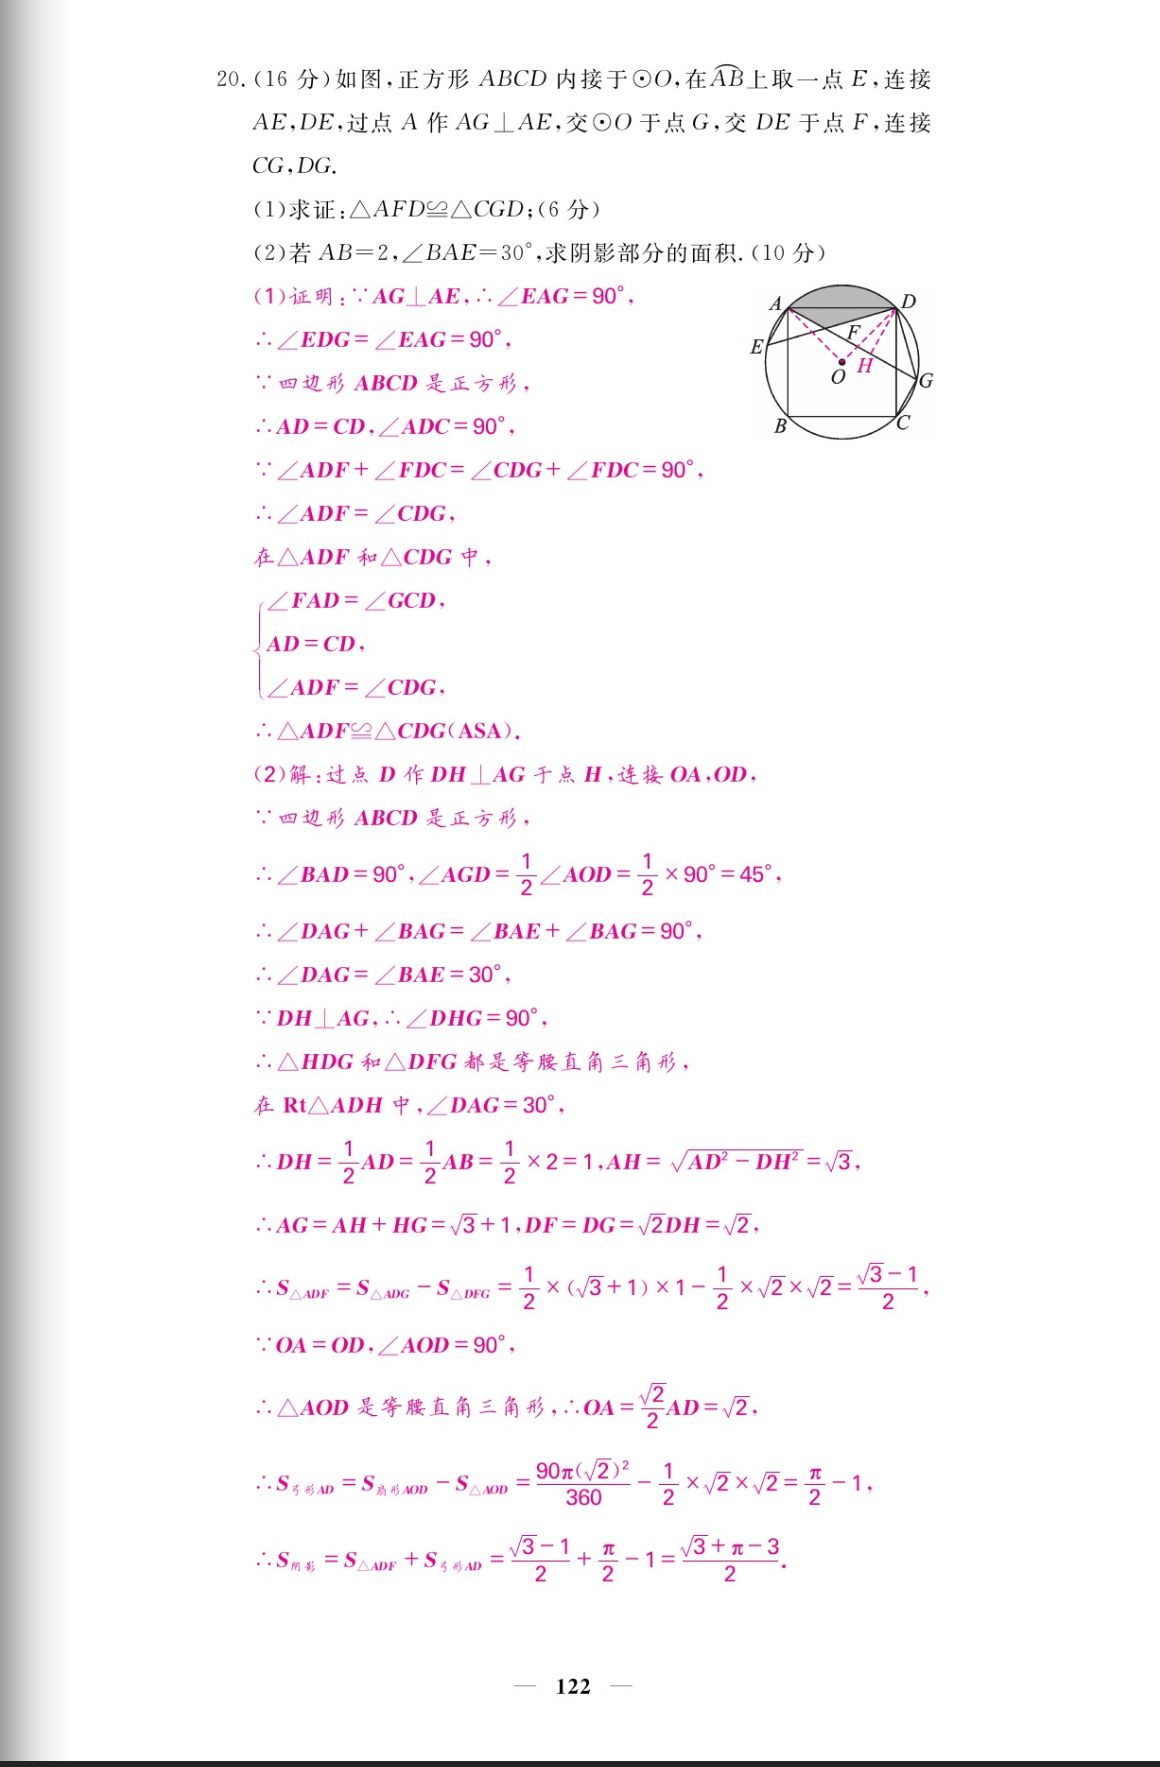 20.(16 分)如图,正方形 ABCD 内接于⊙O,在⌒AB上取一点 E,连接
AE,DE,过点 A 作 AG⊥AE,交⊙O 于点 G,交 DE 于点 F,连接
CG,DG.
(1)求证:△AFD≌△CGD;(6 分)
(2)若 AB=2,∠BAE=30°,求阴影部分的面积.(10 分)
(1)证明:∵AG⊥AE,∴∠EAG=90°,
∴∠EDG=∠EAG=90°,
∵四边形 ABCD 是正方形,
∴AD=CD,∠ADC=90°,
∵∠ADF+∠FDC=∠CDG+∠FDC=90°,
∴∠ADF=∠CDG,
在△ADF 和△CDG 中,
{∠FAD=∠GCD,
AD=CD,
∠ADF=∠CDG,
∴△ADF≌△CDG(ASA).
A
D
E
F
O
H
G
B
C
(2)解:过点 D 作 DH⊥AG 于点 H,连接 OA,OD,
∵四边形 ABCD 是正方形,
∴∠BAD=90°,∠AGD=1/2∠AOD=1/2×90°=45°,
∴∠DAG+∠BAG=∠BAE+∠BAG=90°,
∴∠DAG=∠BAE=30°,
∵DH⊥AG,∴∠DHG=90°,
∴△HDG 和△DFG 都是等腰直角三角形,
在 Rt△ADH 中,∠DAG=30°,
∴DH=1/2AD=1/2AB=1/2×2=1,AH=√(AD²-DH²)=√3,
∴AG=AH+HG=√3+1,DF=DG=√2DH=√2,
∴S△ADF=S△ADG-S△DFG=1/2×(√3+1)×1-1/2×√2×√2=(√3-1)/2,
∵OA=OD,∠AOD=90°,
∴△AOD 是等腰直角三角形,∴OA=√2/2AD=√2,
∴S弓形AD=S扇形AOD-S△AOD=90π(√2)²/360-1/2×√2×√2=π/2-1,
∴S阴影=S△ADF+S弓形AD=(√3-1)/2+π/2-1=(√3+π-3)/2.
— 122 —